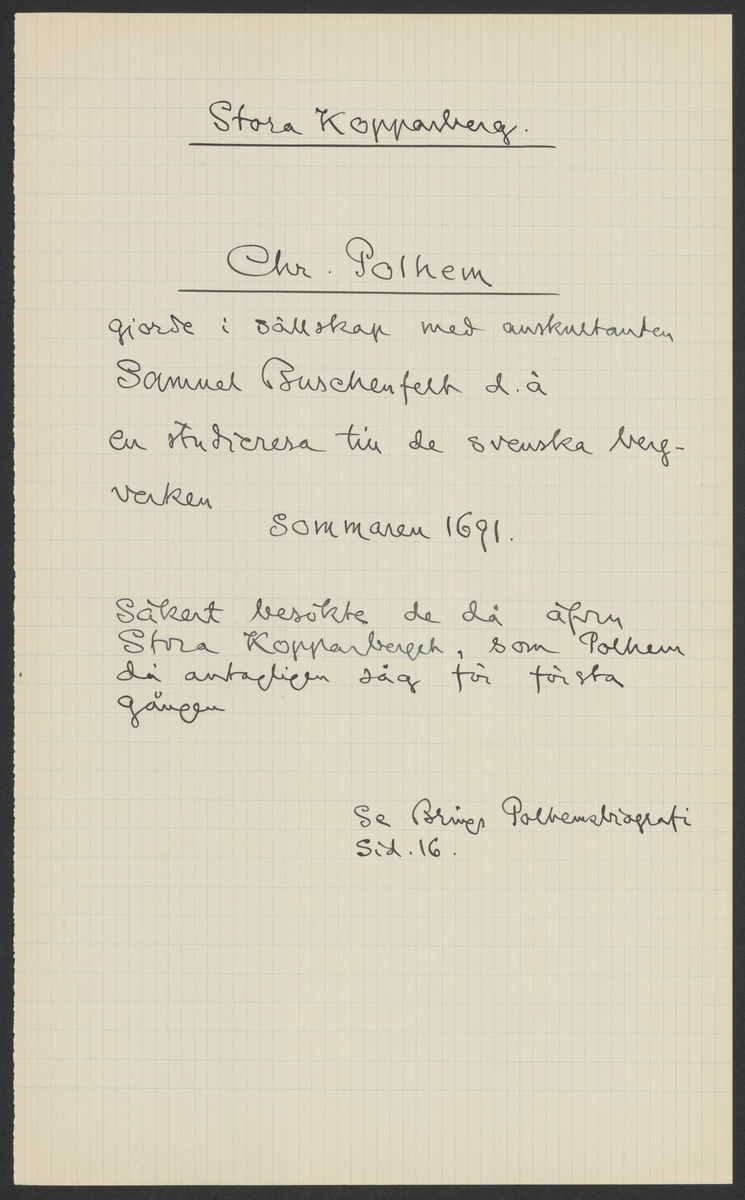 Stora Kopparberg.
Chr. Polhem
gjorde i sällskap med auskultanten
Samuel Buschenfelt d.ä
en studieresa till de svenska berg-
verken
sommaren 1691.
Säkert besökte de då äfven
Stora Kopparberget, som Polhem
då antagligen såg för första
gången
Se Brings Polhemsbiografi
Sid. 16.